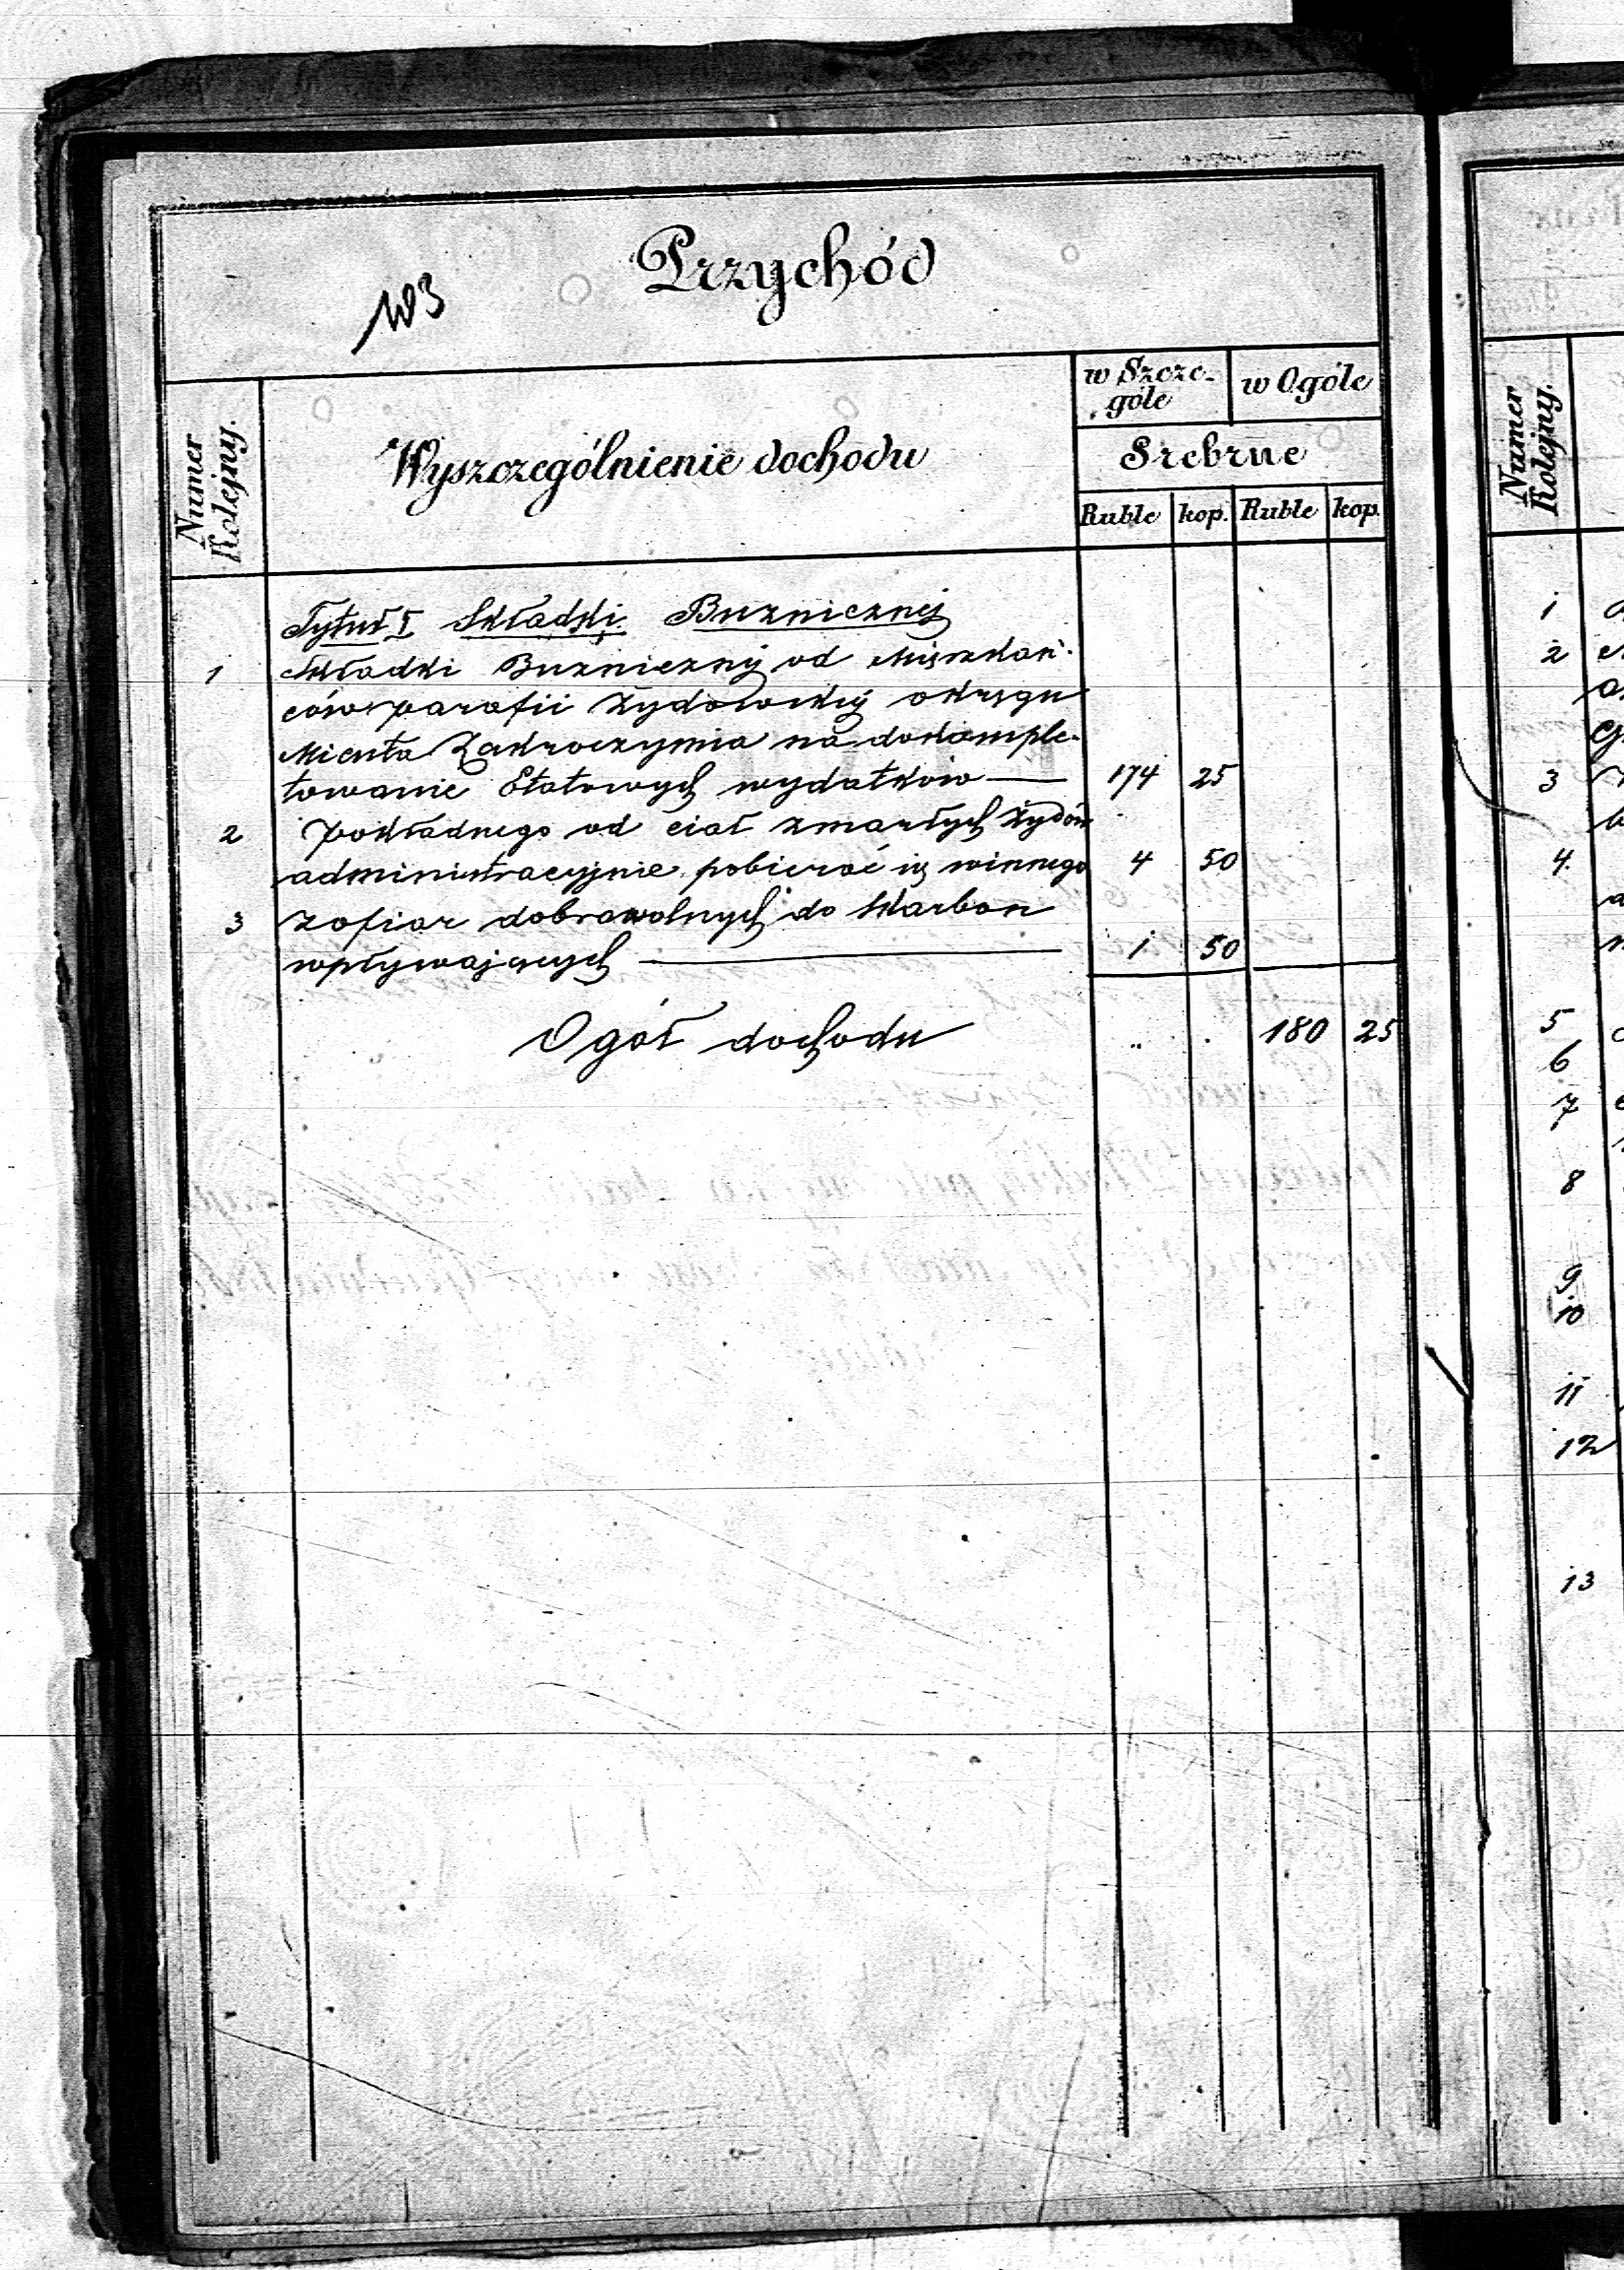 Przychód
103
Numer Kolejny.
Wyszczególnienie dochodu
w Szcze-
góle
w Ogóle
Srebrne
Ruble kop. Ruble kop.
Tytuł I Składki Buznicznej
1 Składki Buzniczny od Mięszkań-
ców parafii Żydowskiy okręgu
Miasta Zakroczymia na dokomple-
towanie Etatowych wydatków — 174 25
2 Pokładnego od ciał zmarłych Żydów
administracyjnie pobierać się winnego 4 50
3 Z ofiar dobrowolnych do Skarbon
wpływających — 1 50
Ogół dochodu „ . 180 25
Numer Kolejny.
1
2
3
4.
5
6
7
8
9
10
11
12
13